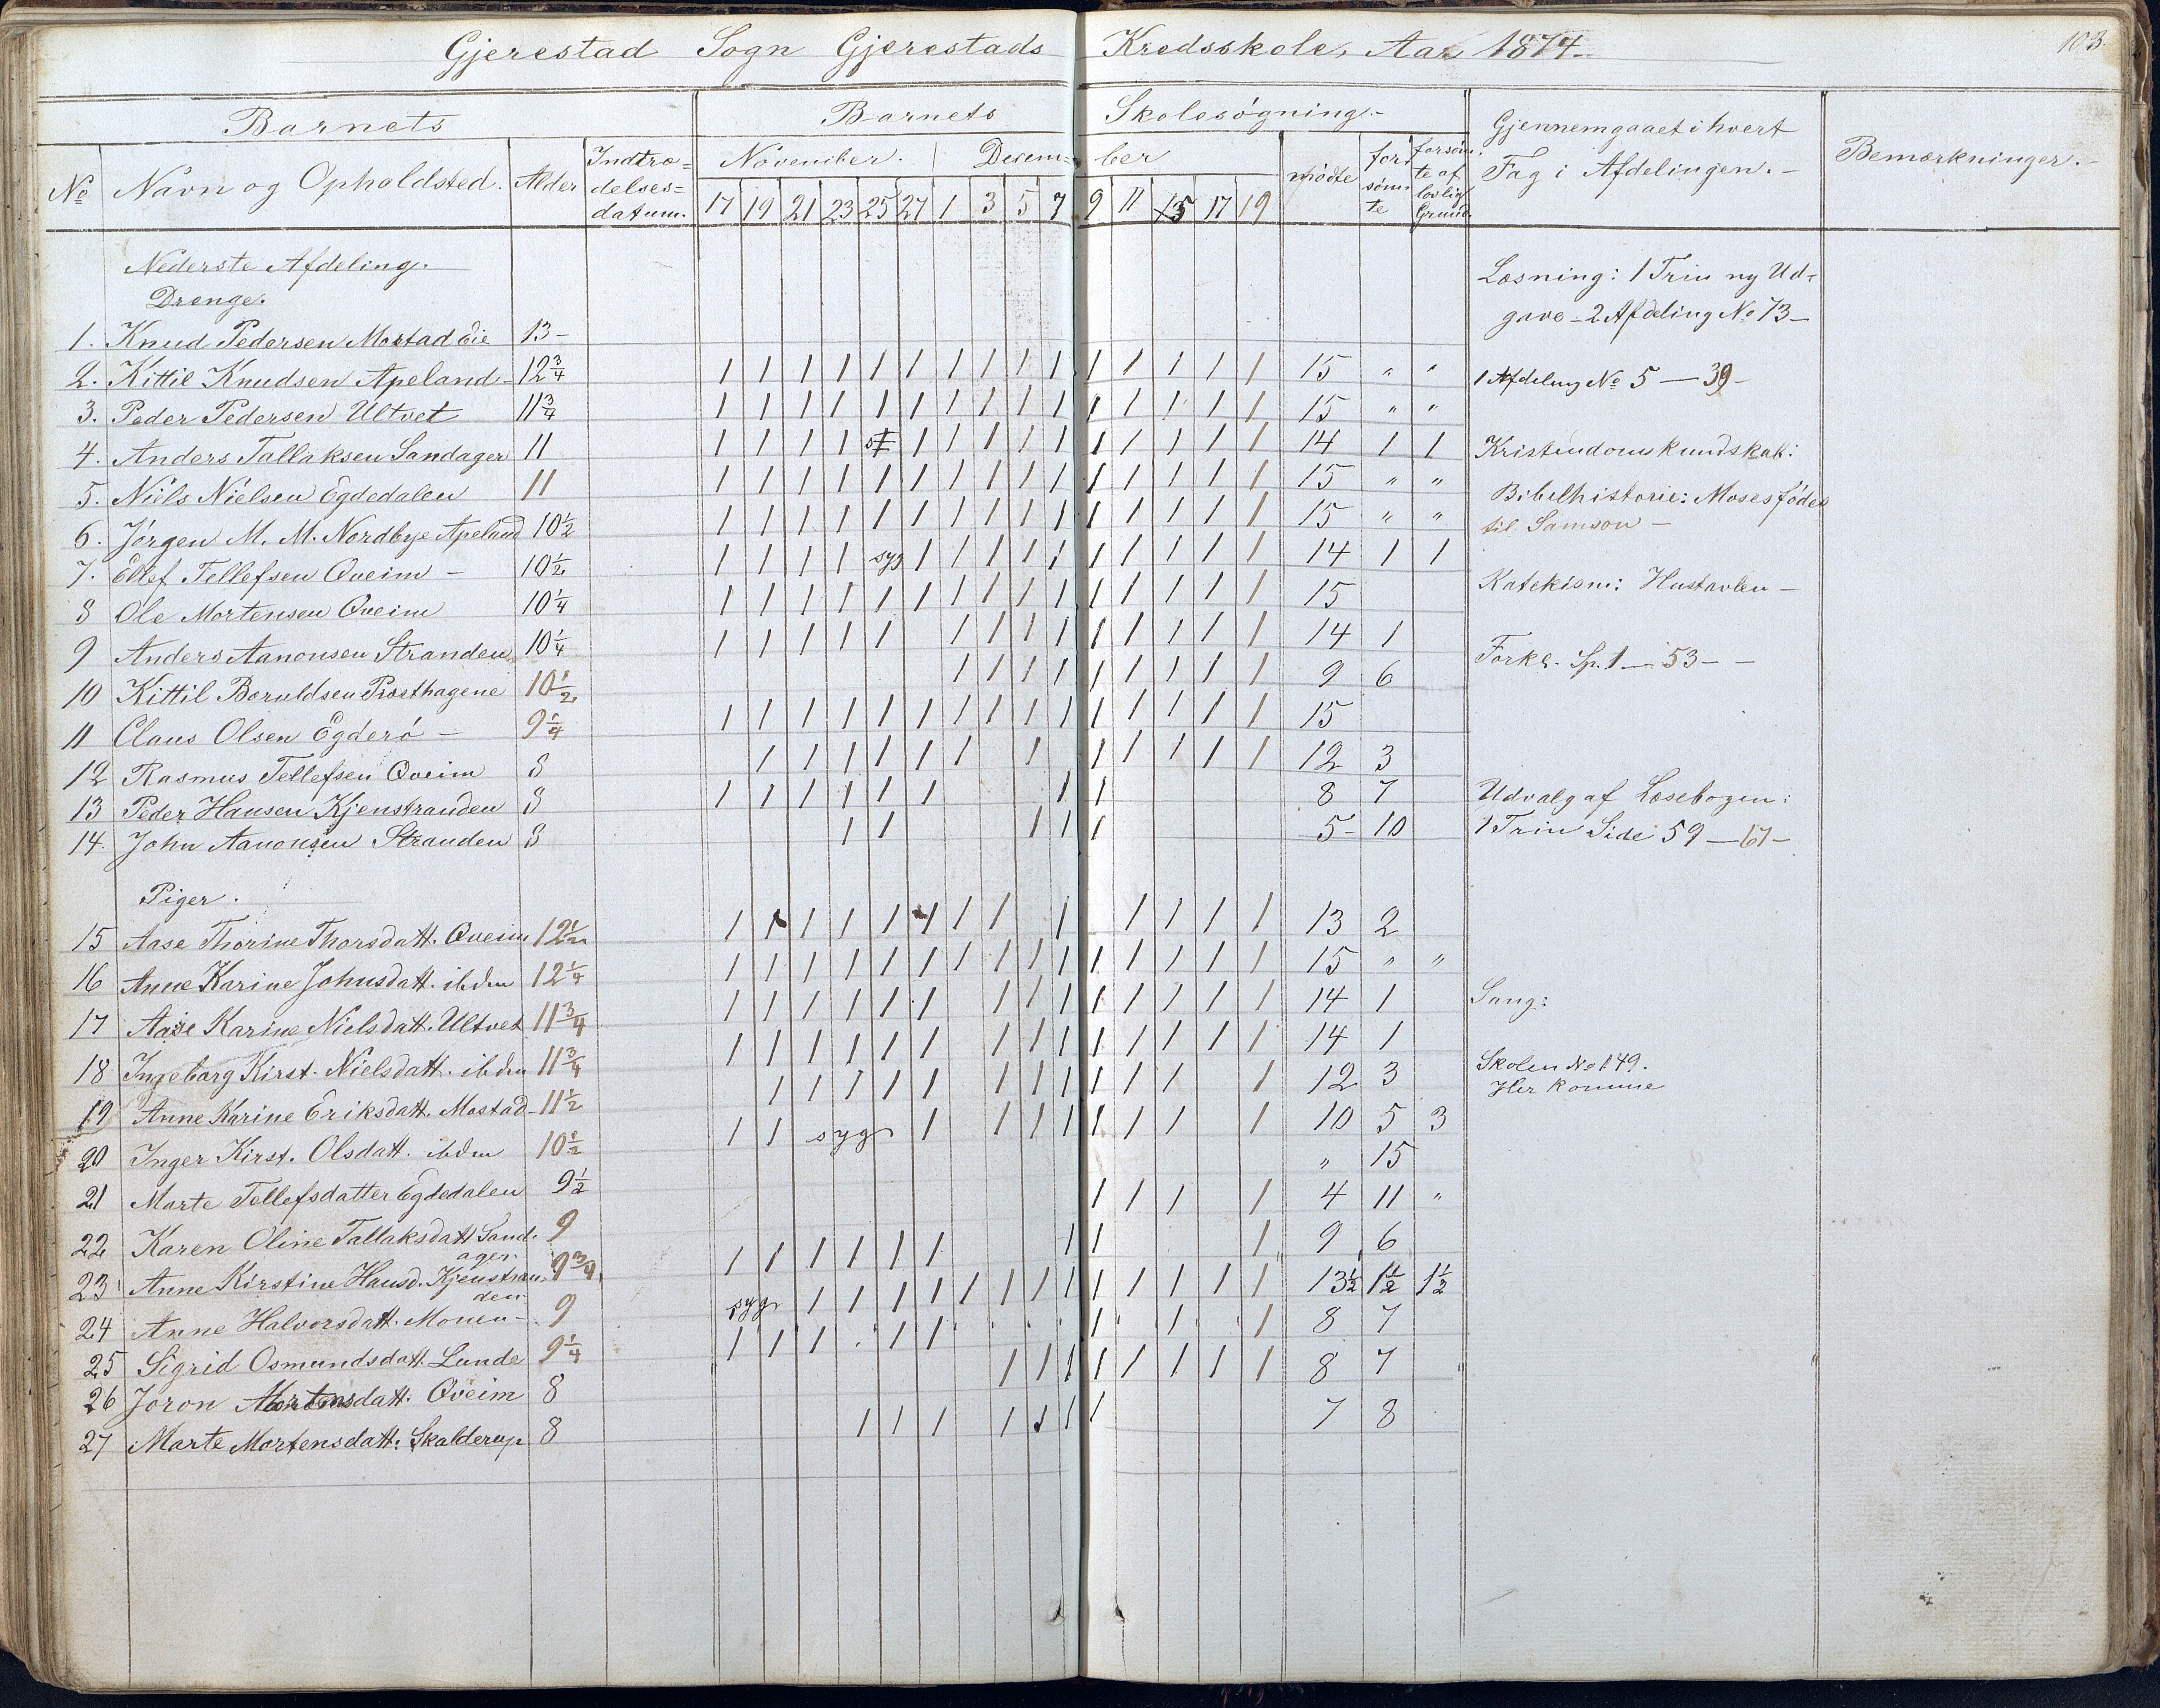 103.
Gjerestad Sogn Gjerestads Kredsskole, Aar 1874.
Barnets Barnets Skolesøgning.-
No Navn og Opholdsted. Alder Indtræ=delses=datum. November. Desember mødte forsømte forsømte af lovlig Grund. Gjennemgaaet i hvert Fag i Afdelingen.- Bemærkninger.-
17 19 21 23 25 27 1 3 5 7 9 11 15 17 19
Nederste Afdeling.
Drenge.
1. Knud Pedersen Mostad Eie 13-
2. Kittil Knudsen Apeland 12 3/4 1 1 1 1 1 1 1 1 1 1 1 1 1 1 1 15 " "
3. Peder Pedersen Ultvet 11 3/4 1 1 1 1 1 1 1 1 1 1 1 1 1 1 1 15 " "
4. Anders Tallaksen Sandager 11 1 1 1 1 1 1 1 1 1 1 1 1 1 1 14 1 1
5. Niels Nielsen Egdedalen 11 1 1 1 1 1 1 1 1 1 1 1 1 1 1 1 15 " "
6. Jørgen M. M. Nordbye Apeland 10 1/2 1 1 1 1 1 1 1 1 1 1 1 1 1 1 1 15 " "
7. Ellef Tellefsen Qveim - 10 1/2 1 1 1 1 syg 1 1 1 1 1 1 1 1 1 1 14 1 1
8 Ole Mortensen Qveim 10 1/4 1 1 1 1 1 1 1 1 1 1 1 1 1 1 1 15
9 Anders Aanonsen Stranden 10 1/4 1 1 1 1 1 1 1 1 1 1 1 1 1 1 14 1
10 Kittil Boruldsen Præsthagene 10 1/2 1 1 1 1 1 1 1 1 1 9 6
11 Claus Olsen Egderø - 9 1/4 1 1 1 1 1 1 1 1 1 1 1 1 1 1 1 15
12 Rasmus Tellefsen Qveim 8 1 1 1 1 1 1 1 1 1 1 1 1 12 3
13 Peder Hansen Kjenstranden 8 1 1 1 1 1 1 1 1 8 7
14. John Aanonsen Stranden 8 1 1 1 1 1 5- 10
Piger.
15 Aase Thorine Thorsdatt. Qveim 12 1/2 1 1 1 1 1 1 1 1 1 1 1 1 1 13 2
16 Anne Karine Johnsdatt. ibdm 12 1/4 1 1 1 1 1 1 1 1 1 1 1 1 1 1 1 15 " "
17 Aase Karine Nielsdatt. Ultvet 11 3/4 1 1 1 1 1 1 1 1 1 1 1 1 1 1 14 1
18 Ingeborg Kirst. Nielsdatt. ibdm 11 3/4 1 1 1 1 1 1 1 1 1 1 1 1 1 1 14 1
19 Anne Karine Eriksdatt. Mostad 11 1/2 1 1 1 1 1 1 1 1 1 1 1 1 12 3
20 Inger Kirst. Olsdatt. ibdm 10 1/2 1 1 syg 1 1 1 1 1 1 1 1 10 5 3
21 Marte Tellefsdatter Egdedalen 9 1/2 " 15
22 Karen Oline Tallaksdatt Sandager. 9 1 1 1 1 4 11 "
23 Anne Kirstine Hansd. Kjenstranden 9 3/4 1 1 1 1 1 1 1 1 1 9 6
24 Anne Halvorsdatt. Monen- 9 syg 1 1 1 1 1 1 1 1 1 1 1 1 1 13 1/2 1 1/2 1 1/2
25 Sigrid Osmundsdatt. Lunde 9 1/4 1 1 1 1 1 1 1 1 8 7
26 Joron Mortensdatt. Qveim 8 1 1 1 1 1 1 1 1 8 7
27 Marte Mortensdatt. Skalderup 8 1 1 1 1 1 1 1 7 8
Læsning: 1 Trin ny Ud-
gave - 2 Afdeling No 73-
1 Afdeling No 5 — 39-
Kristendomskundskab:
Bibelhistorie: Moses fødes
til Samson -
Katekism: Hustavlen -
Forkl. Sp. 1 — 53 - -
Udvalg af Læsebogen:
1 Trin Side 59 — 67-
Sang:
Skolen No 149.
Her komme